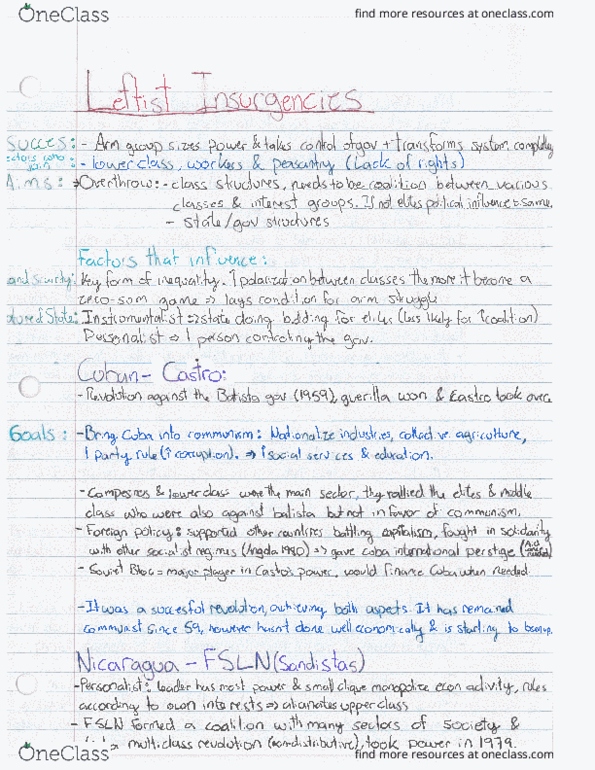 OneClass
find more resources at oneclass.com
Leftist Insurgencies
Succes: - Arm group sizes power & takes control of gov + transforms system completly
- lower class, workers & peasantry (Lack of rights)
Aims: → Overthrow: - class structures, needs to be coalition between various
classes & interest groups. If not elites political influence = same.
- state/gov structures
Factors that influence:
Key form of inequality. ↑ polarization between classes the more it become a
zero-som game ⇒ lays condition for arm struggle
State: Instrumentalist ⇒ state doing bidding for elites (less likely for ↑ coalition)
Personalist ⇒ 1 person controlling the gov.
Cuban - Castro:
- Revolution against the Batista gov (1959), guerilla won & Castro took over.
Goals: - Bring Cuba into communism: Nationalize industries, collective agriculture,
1 party rule (↑ corruption). ⇒ ↑ social services & education.
- Campesinos & lower class were the main sector, they rallied the elites & middle
class who were also against batista but not in favor of communism.
- Foreign policy: supported other countries battling capitalism, fought in solidarity
with other socialist regimes (Angola 1980) ⇒ gave cuba international perstige
- Soviet Bloc = major player in Castro's power, would finance Cuba when needed
- It was a succesful revolution, achieving both aspects. It has remained
communist since 59, however hasn't done well economically & is starting to
Nicaragua - FSLN (Sandistas)
- Personalist: leader has most power & small clique monopolize econ activity, rules
according to own interests ⇒ alianates upper class
- FSLN formed a coalition with many sectors of society &
a multiclass revolution took power in 1979.
OneClass
find more resources at oneclass.com